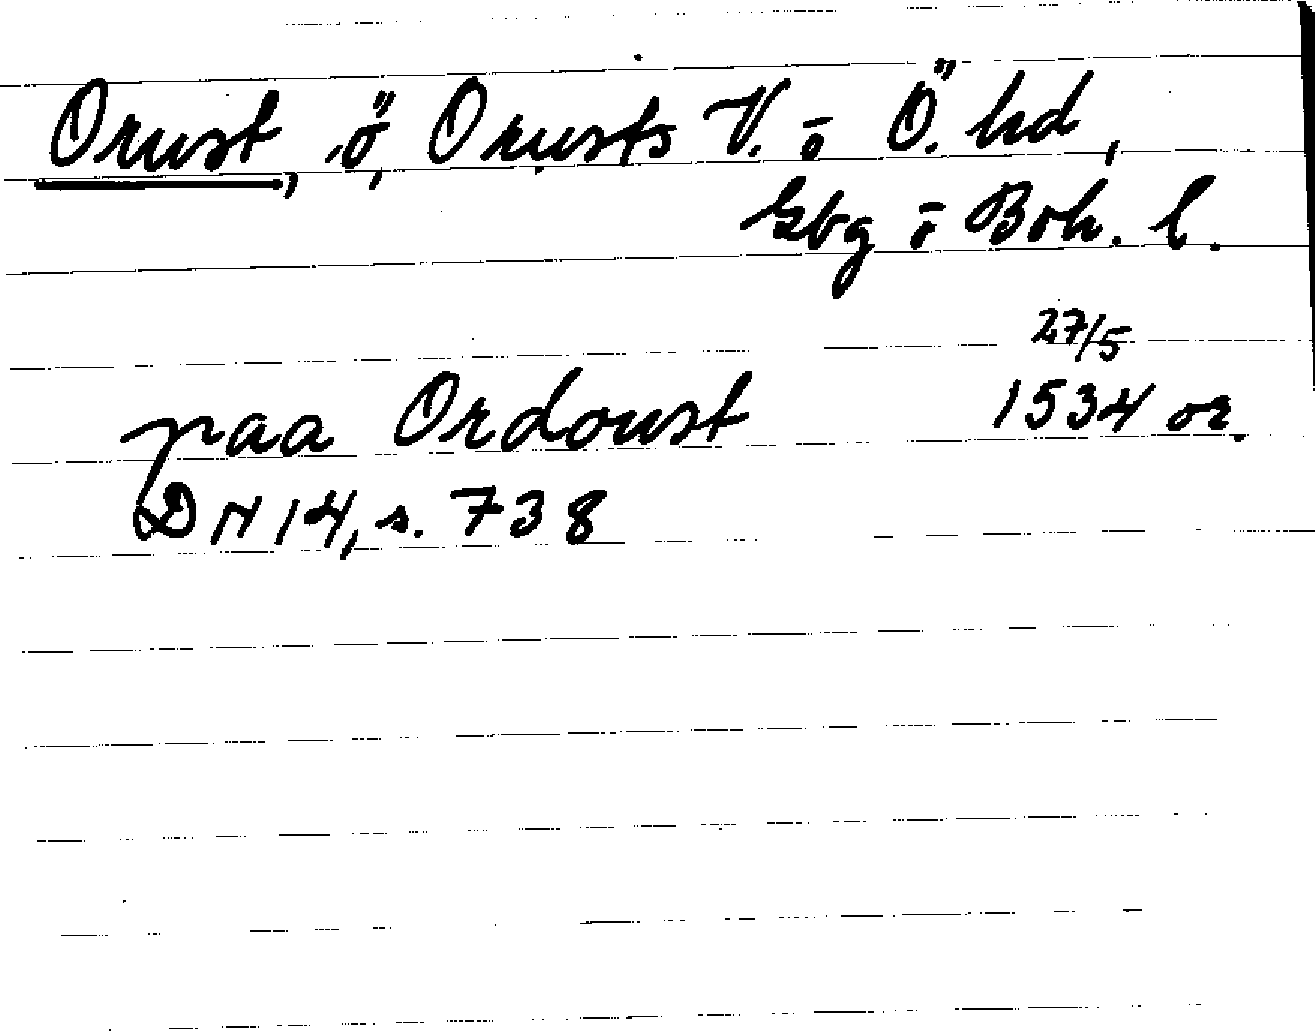 Orust, ö, Orusts V. o Ö. hd,
Gbg o Boh. l.
27/5
paa Ordoust 1534 or.
DN 14, s. 738